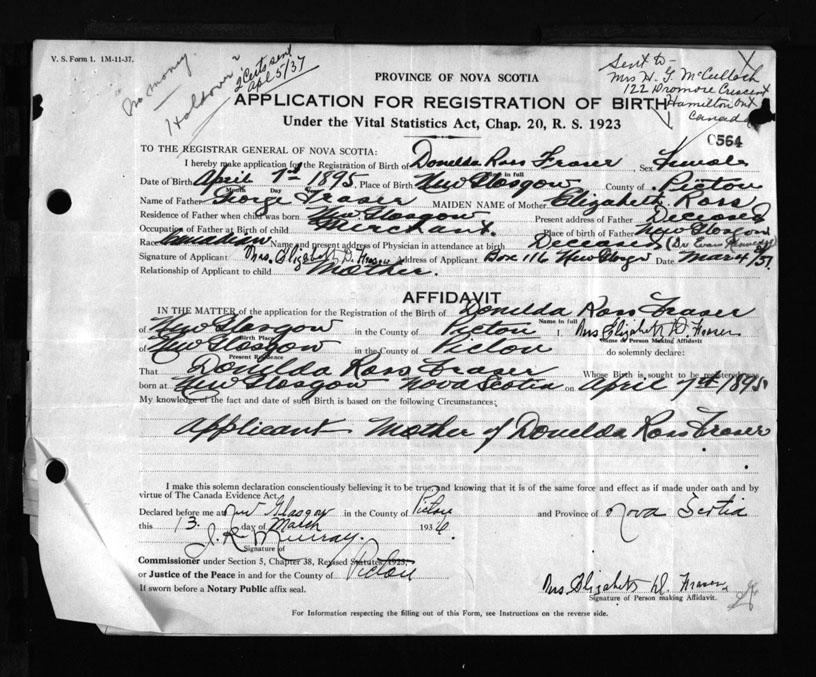 V. S. Form 1. 1M-11-37.
no money
Holdover
2 Certs sent
Apl 5/37
Sent to -
Mrs H. G. McCulloch
122 Dromore Crescent
Hamilton Ont
Canada
PROVINCE OF NOVA SCOTIA
APPLICATION FOR REGISTRATION OF BIRTH
Under the Vital Statistics Act, Chap. 20, R. S. 1923
C564
TO THE REGISTRAR GENERAL OF NOVA SCOTIA:
I hereby make application for the Registration of Birth of Donelda Ross Fraser Sex Female
Name in full
Date of Birth April 7th 1895, Place of Birth New Glasgow County of Pictou
Month Day Year
Name of Father George Fraser MAIDEN NAME of Mother Elizabeth Ross
Residence of Father when child was born New Glasgow Present address of Father Deceased
Occupation of Father at Birth of child Merchant. Place of birth of Father New Glasgow
Race Canadian Name and present address of Physician in attendance at birth Deceased (Dr Evan Kennedy)
Signature of Applicant Mrs. Elizabeth D. Fraser Address of Applicant Box 116 New Glasgow Date Mar 4/37
Relationship of Applicant to child Mother.
AFFIDAVIT
IN THE MATTER of the application for the Registration of the Birth of Donelda Ross Fraser
Name in full
of New Glasgow in the County of Pictou I, Mrs Elizabeth D. Fraser
Birth Place
Name of Person Making Affidavit
of New Glasgow in the County of Pictou do solemnly declare:
Present Residence
That Donelda Ross Fraser Whose Birth is sought to be registered was
born at New Glasgow Nova Scotia on April 7th 1895
My knowledge of the fact and date of such Birth is based on the following Circumstances:
Applicant Mother of Donelda Ross Fraser
I make this solemn declaration conscientiously believing it to be true, and knowing that it is of the same force and effect as if made under oath and by
virtue of The Canada Evidence Act.
Declared before me at New Glasgow in the County of Pictou and Province of Nova Scotia
this 13. day of March 193
J. R. Murray.
Signature of
Commissioner under Section 5, Chapter 38, Revised Statutes, 1923,
or Justice of the Peace in and for the County of Pictou
If sworn before a Notary Public affix seal.
Mrs. Elizabeth D. Fraser
Signature of Person making Affidavit.
For Information respecting the filling out of this Form, see Instructions on the reverse side.